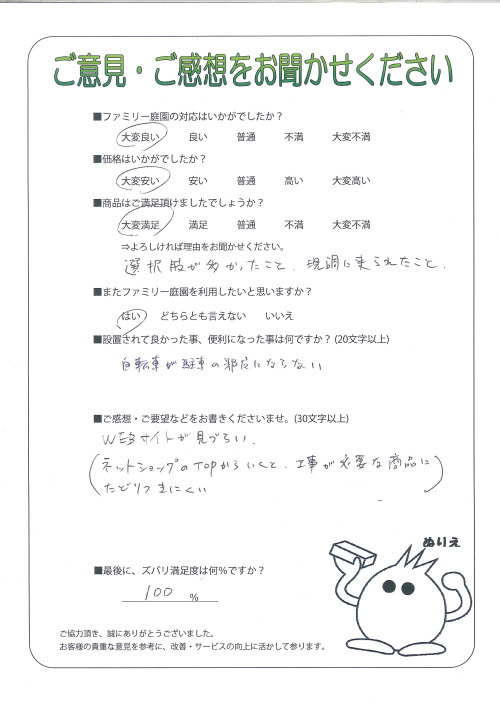 ご意見・ご感想をお聞かせください
■ファミリー庭園の対応はいかがでしたか？
大変良い 良い 普通 不満 大変不満
■価格はいかがでしたか？
大変安い 安い 普通 高い 大変高い
■商品はご満足頂けましたでしょうか？
大変満足 満足 普通 不満 大変不満
⇒よろしければ理由をお聞かせください。
選択肢が多かったこと、現調に来られたこと。
■またファミリー庭園を利用したいと思いますか？
はい どちらとも言えない いいえ
■設置されて良かった事、便利になった事は何ですか？(20文字以上)
自転車が駐車の邪魔にならない
■ご感想・ご要望などをお書きくださいませ。(30文字以上)
WEBサイトが見づらい.
(ネットショップのTOPからいくと、工事が必要な商品に
たどりつきにくい)
ぬりえ
■最後に、ズバリ満足度は何%ですか？
100 %
ご協力頂き、誠にありがとうございました。
お客様の貴重な意見を参考に、改善・サービスの向上に活かして参ります。